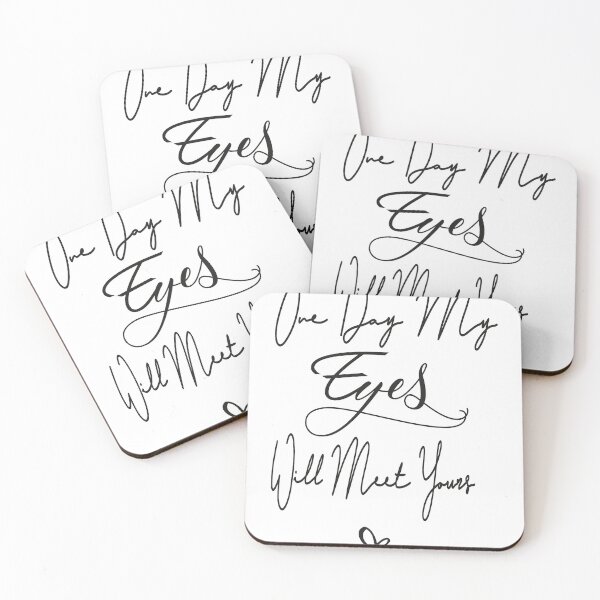 One Day My
Eyes
Yours
One Day My
Eyes
Will Meet
One Day My
Eyes
Will Meet Y
One Day My
Eyes
Will Meet Yours